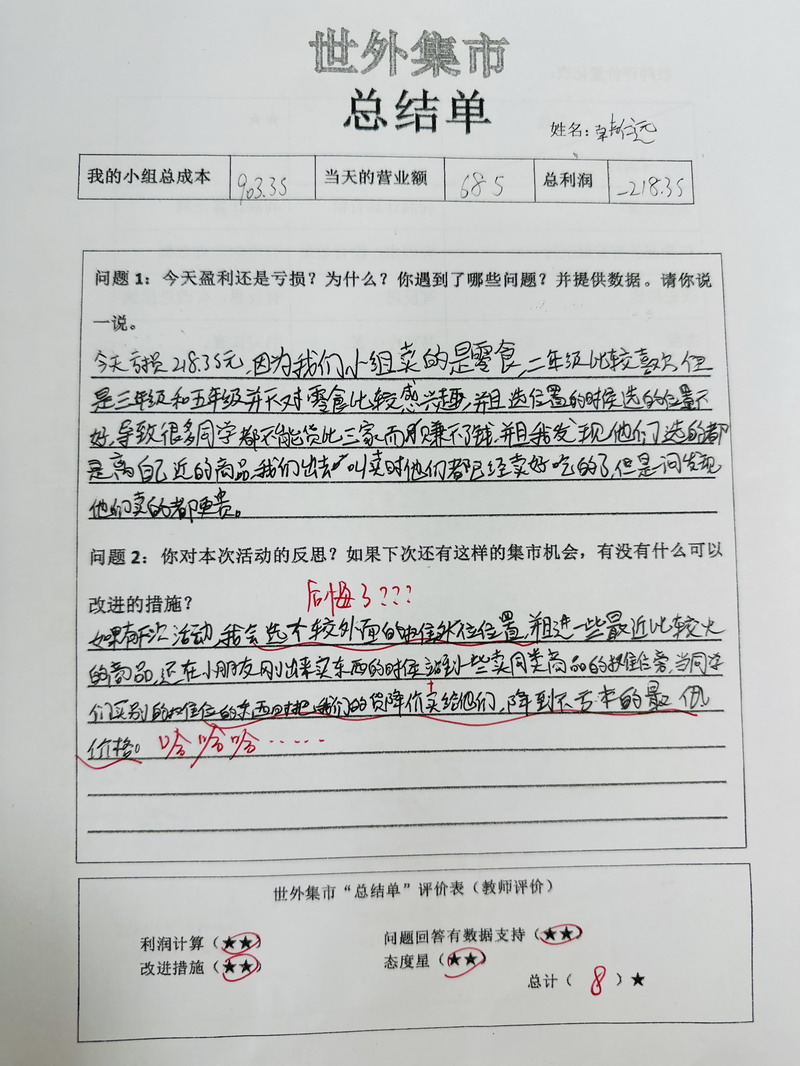 世外集市
总结单
姓名：
我的小组总成本 903.35 当天的营业额 685 总利润 -218.35
问题1：今天盈利还是亏损？为什么？你遇到了哪些问题？并提供数据。请你说
一说。
今天亏损218.35元，因为我们小组卖的是零食，二年级比较喜欢，但
是三年级和五年级并不对零食比较感兴趣，并且选位置的时候选的位置不
好，导致很多同学都不能货比三家，而赚不了钱，并且我发现他们选的都
是离自己近的商品，我们出去叫卖时他们都已经卖好吃的了，但是问发现
他们卖的都更贵。
问题2：你对本次活动的反思？如果下次还有这样的集市机会，有没有什么可以
改进的措施？
后悔了???
如果有下次活动，我会选不较外面的摊位位置，并且进一些最近比较火
的商品，还在小朋友刚出来买东西的时候站到一些卖同类商品的摊位旁，当同学
们买别的摊位的东西时把我们的货降价卖给他们，降到不亏本的最低
价格。哈哈哈……
世外集市“总结单”评价表（教师评价）
利润计算（★★） 问题回答有数据支持（★★）
改进措施（★★） 态度星（★★）
总计（8）★